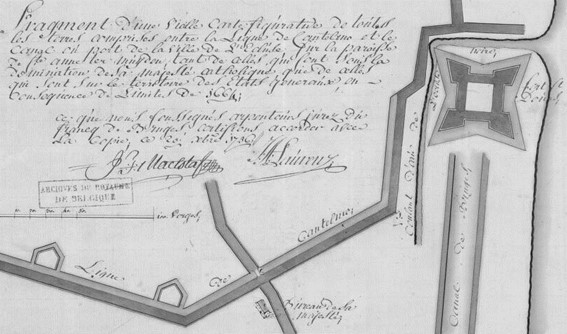 Fragment d'une Vielle Carte figurative de toutes
les terres comprises entre la Ligne de Cantelmo et le
Canal ou port de la Ville de l'Ecluse sur la paroisse
de Ste anne ter muyden, tant de celles qui sont sous la
domination de sa Majesté Catholique que de celles
qui sont sur le territoire des Etats Generaux en
Consequence de Limites de 1664
ce que nous soussignés arpenteurs jurez du
francq de Bruges certifions accorder avec
La Copie, ce 20
ARCHIVES DU ROYAUME
DE BELGIQUE
en Verges
Ligne
De
Cantelmo
Bureau de Sa
Majesté
Courant d'eau de l'Ecluse
Canal de Bruges
fort St
Donas